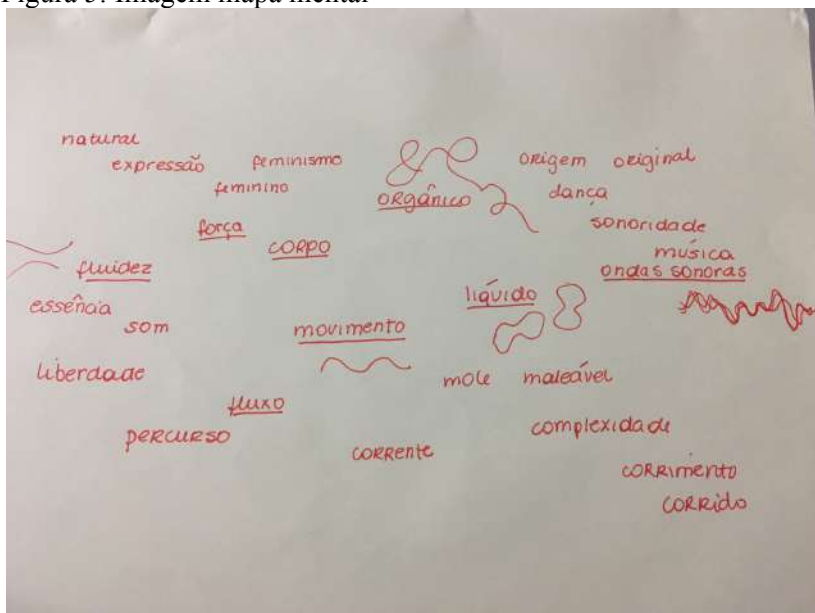 Figura 5: Imagem mapa mental
natural
expressão
feminismo
feminino
orgânico
origem original
dança
sonoridade
música
ondas sonoras
força
corpo
fluidez
essência
som
movimento
líquido
liberdade
mole maleável
fluxo
percurso
corrente
complexidade
corrimento
corrido